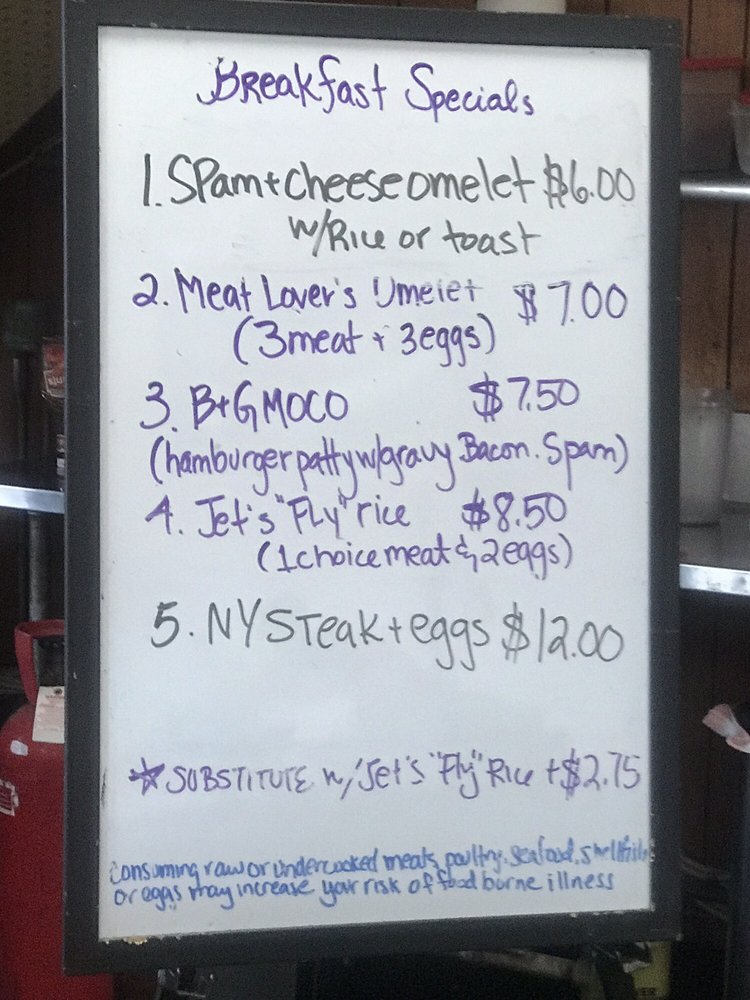 Breakfast Specials
1. SPam + Cheese omelet $6.00
w/Rice or toast
2. Meat Lover's Omelet $7.00
(3meat + 3eggs)
3. B+G MOCO $7.50
(hamburger patty w/gravy Bacon. Spam)
4. Jet's "FLy" rice $8.50
(1 choice meat & 2 eggs)
5. NY STeak + eggs $12.00
☆ SUBSTITUTE w/ Jet's "Fly" Rice +$2.75
Consuming raw or undercooked meats, poultry, seafood, shellfish
or eggs may increase your risk of food borne illness